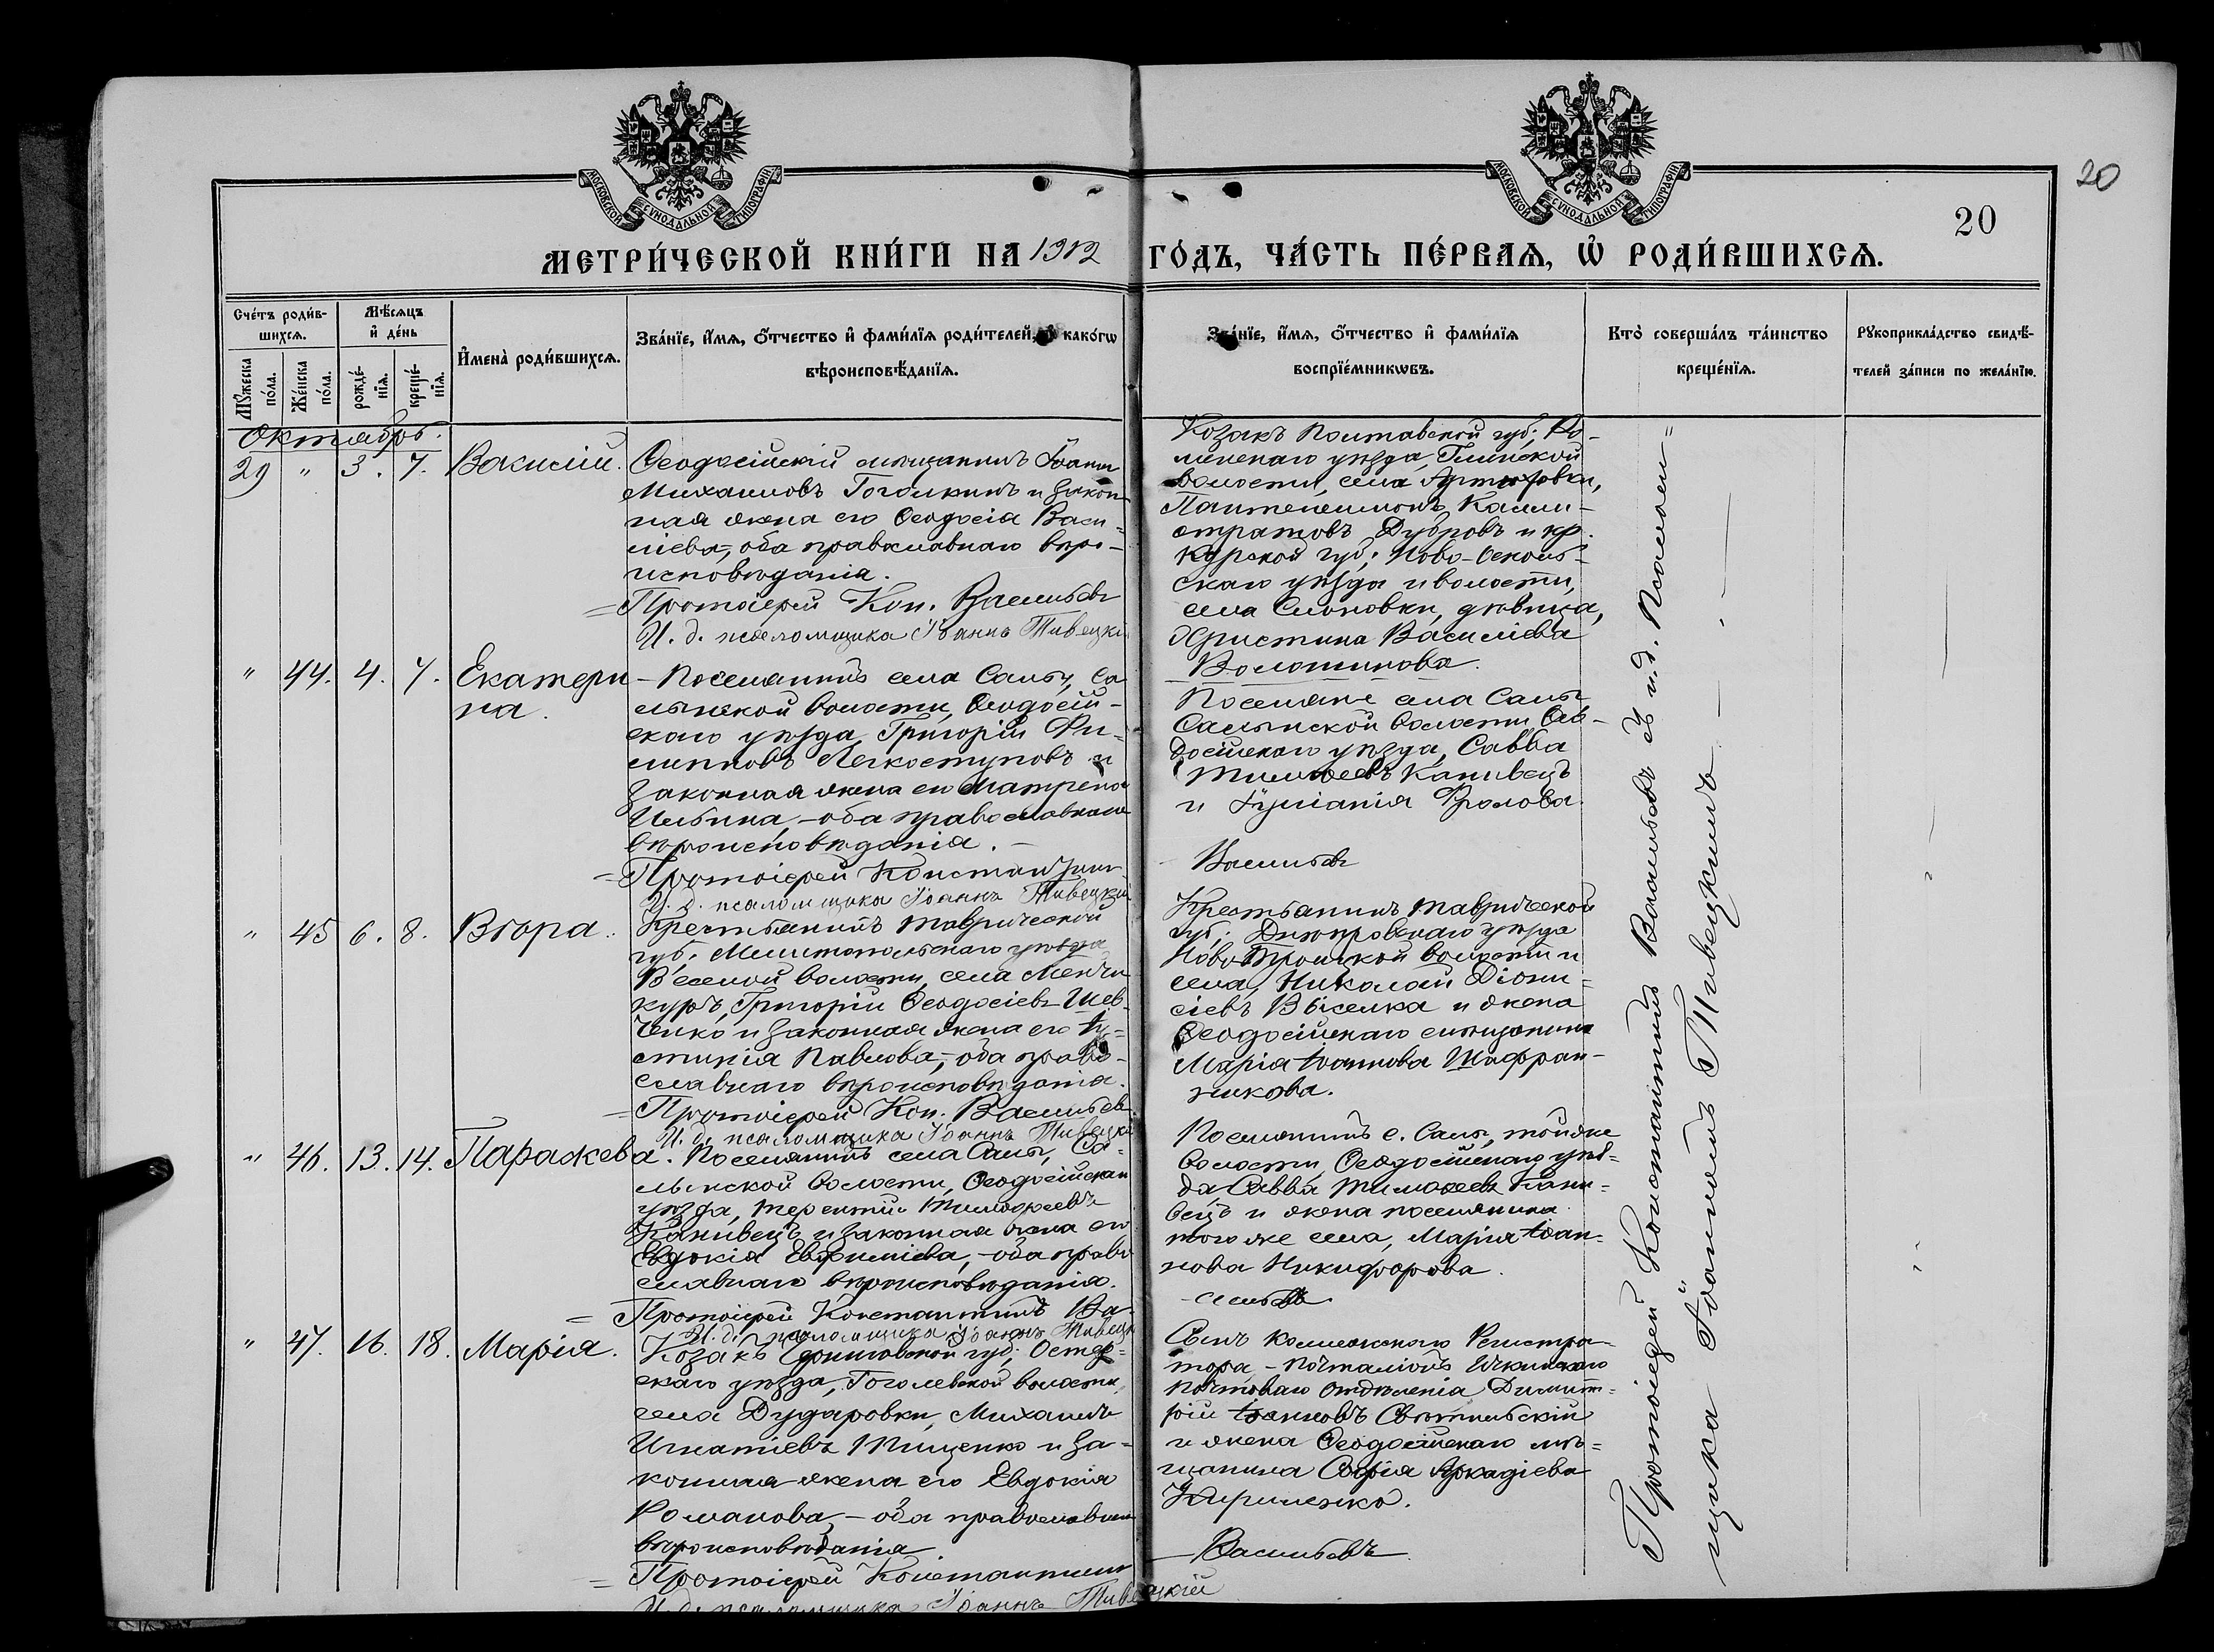 20
МОСКОВСКОЙ СѴНОДАЛЬНОЙ ТИПОГРАФІИ
МОСКОВСКОЙ СѴНОДАЛЬНОЙ ТИПОГРАФІИ
20
МЕТРИ́ЧЕСКОЙ КНИ́ГИ НА 1912 ГО́ДЪ, ЧА́СТЬ ПЕ́РВАѦ, Ѡ҆ РОДИ́ВШИХСѦ.
Сче́тъ роди́в-
шихсѧ.
Мꙋ́жеска по́ла.
Же́нска по́ла.
Мѣ́сѧцъ
и҆ де́нь
рожде́-
нїѧ.
креще́-
нїѧ.
И҆мена̀ роди́вшихсѧ.
Зва́нїе, и҆́мѧ, ѻ҆́тчество и҆ фами́лїѧ роди́телей, и҆ како́гѡ
вѣроисповѣ́данїѧ.
Зва́нїе, и҆́мѧ, ѻ҆́тчество и҆ фами́лїѧ
воспрїе́мникѡвъ.
Кто̀ соверша́лъ та́инство
креще́нїѧ.
Рꙋкоприкла́дство свидѣ́-
телей за́писи по жела́нїю.
Октябрь.
29 " 3. 7. Василій.
Ѳеодосійскій мѣщанинъ Іоаннъ
Михаиловъ Гоголкинъ и закон-
ная жена его Ѳеодосія Васи-
ліева, оба православнаго вѣро-
исповѣданія.
Протоіерей Кон. Васильевъ
И. д. псаломщика Іоаннъ Тивецкій
Козакъ Полтавской губ; Ро-
менскаго уѣзда, Глинской
волости, села Артюховки,
Пантелеимонъ Калли-
стратовъ Дубровъ и кр.
Курской губ; Ново-Осколь-
скаго уѣзда и волости,
села Слоновки, дѣвица,
Христина Василіева
Волотинова.
" 44. 4. 7. Екатери-
на.
Поселянинъ села Салы, Са-
лынской волости, Ѳеодосій-
скаго уѣзда, Григорій Фи-
липповъ Легкоступовъ и
законная жена его Матрена
Ильина, - оба православнаго
вѣроисповѣданія. -
Протоіерей Константинъ
И. д. псаломщика Іоаннъ Тивецкій
Поселяне села Салы
Салынской волости, Ѳео-
досійскаго уѣзда, Савва
Тимоѳеевъ Канивецъ
и Іуліанія Фролова.
Васильевъ
" 45 6. 8. Вѣра.
Крестьянинъ Таврической
губ. Мелитопольскаго уѣзда
Веселой волости, села Менчи-
куръ, Григорій Ѳеодосіевъ Шев-
ченко и законная жена его Іу-
стинія Павлова, - оба право-
славнаго вѣроисповѣданія.
Протоіерей Кон. Васильевъ.
И. д. псаломщика Іоаннъ Тивецкій
Крестьянинъ Таврической
губ; Днѣпровскаго уѣзда
Ново Троицкой волости и
села, Николай Діони-
сіевъ Выселка и жена
Ѳеодосійскаго мѣщанина
Марія Іоаннова Шафран-
никова.
" 46. 13. 14. Параскева.
Поселянинъ села Салы, Са-
лынской волости, Ѳеодосійскаго
уѣзда, Терентій Тимоѳеевъ
Канивецъ и законная жена его
Евдокія Евфиміева, - оба право-
славнаго вѣроисповѣданія.
Протоіерей Константинъ Ва-
И. д. псаломщика Іоаннъ Тивецкій
Поселянинъ с. Салы, той же
волости, Ѳеодосійскаго уѣз-
да, Савва Тимоѳеевъ Кани-
вецъ и жена поселянина
того же села, Марія Іоан-
нова Никифорова.
сильевъ
" 47. 16. 18. Марія.
Козакъ Черниговской губ; Остер-
скаго уѣзда, Гоголевской волости,
села Дударовки, Михаилъ
Игнатіевъ Тищенко и за-
конная жена его Евдокія
Романова, - оба православнаго
вѣроисповѣданія.
Протоіерей Константинъ
И. д. псаломщика Іоаннъ Тивецкій
Сынъ коллежскаго Регистра-
тора, - почталіонъ
почтоваго отдѣленія Димит-
рій Іоанновъ Свѣтильскій
и жена Ѳеодосійскаго мѣ-
щанина Софія Аркадіева
Кириленко.
Васильевъ
Протоіерей Константинъ Васильевъ съ и. д. Псалом-
щика Іоанномъ Тивецкимъ